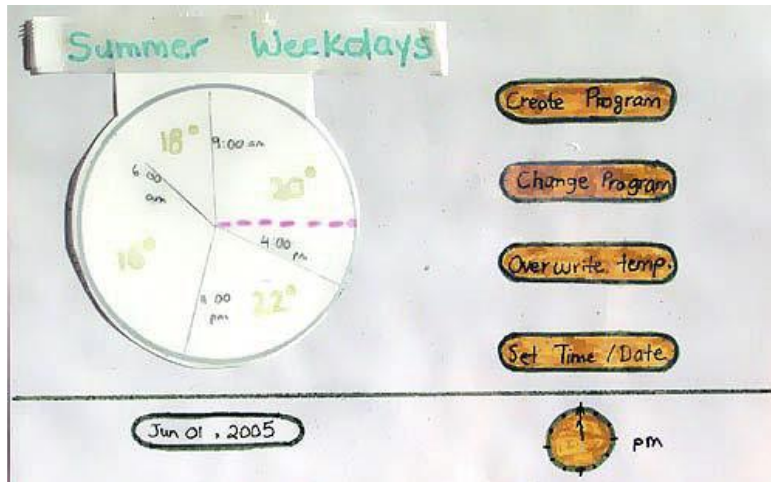 Summer Weekdays
18°
9:00 am
6:00
am
20°
4:00
pm
16°
22°
00
pm
Create Program
Change Program
Overwrite temp.
Set Time / Date
Jun 01, 2005
pm